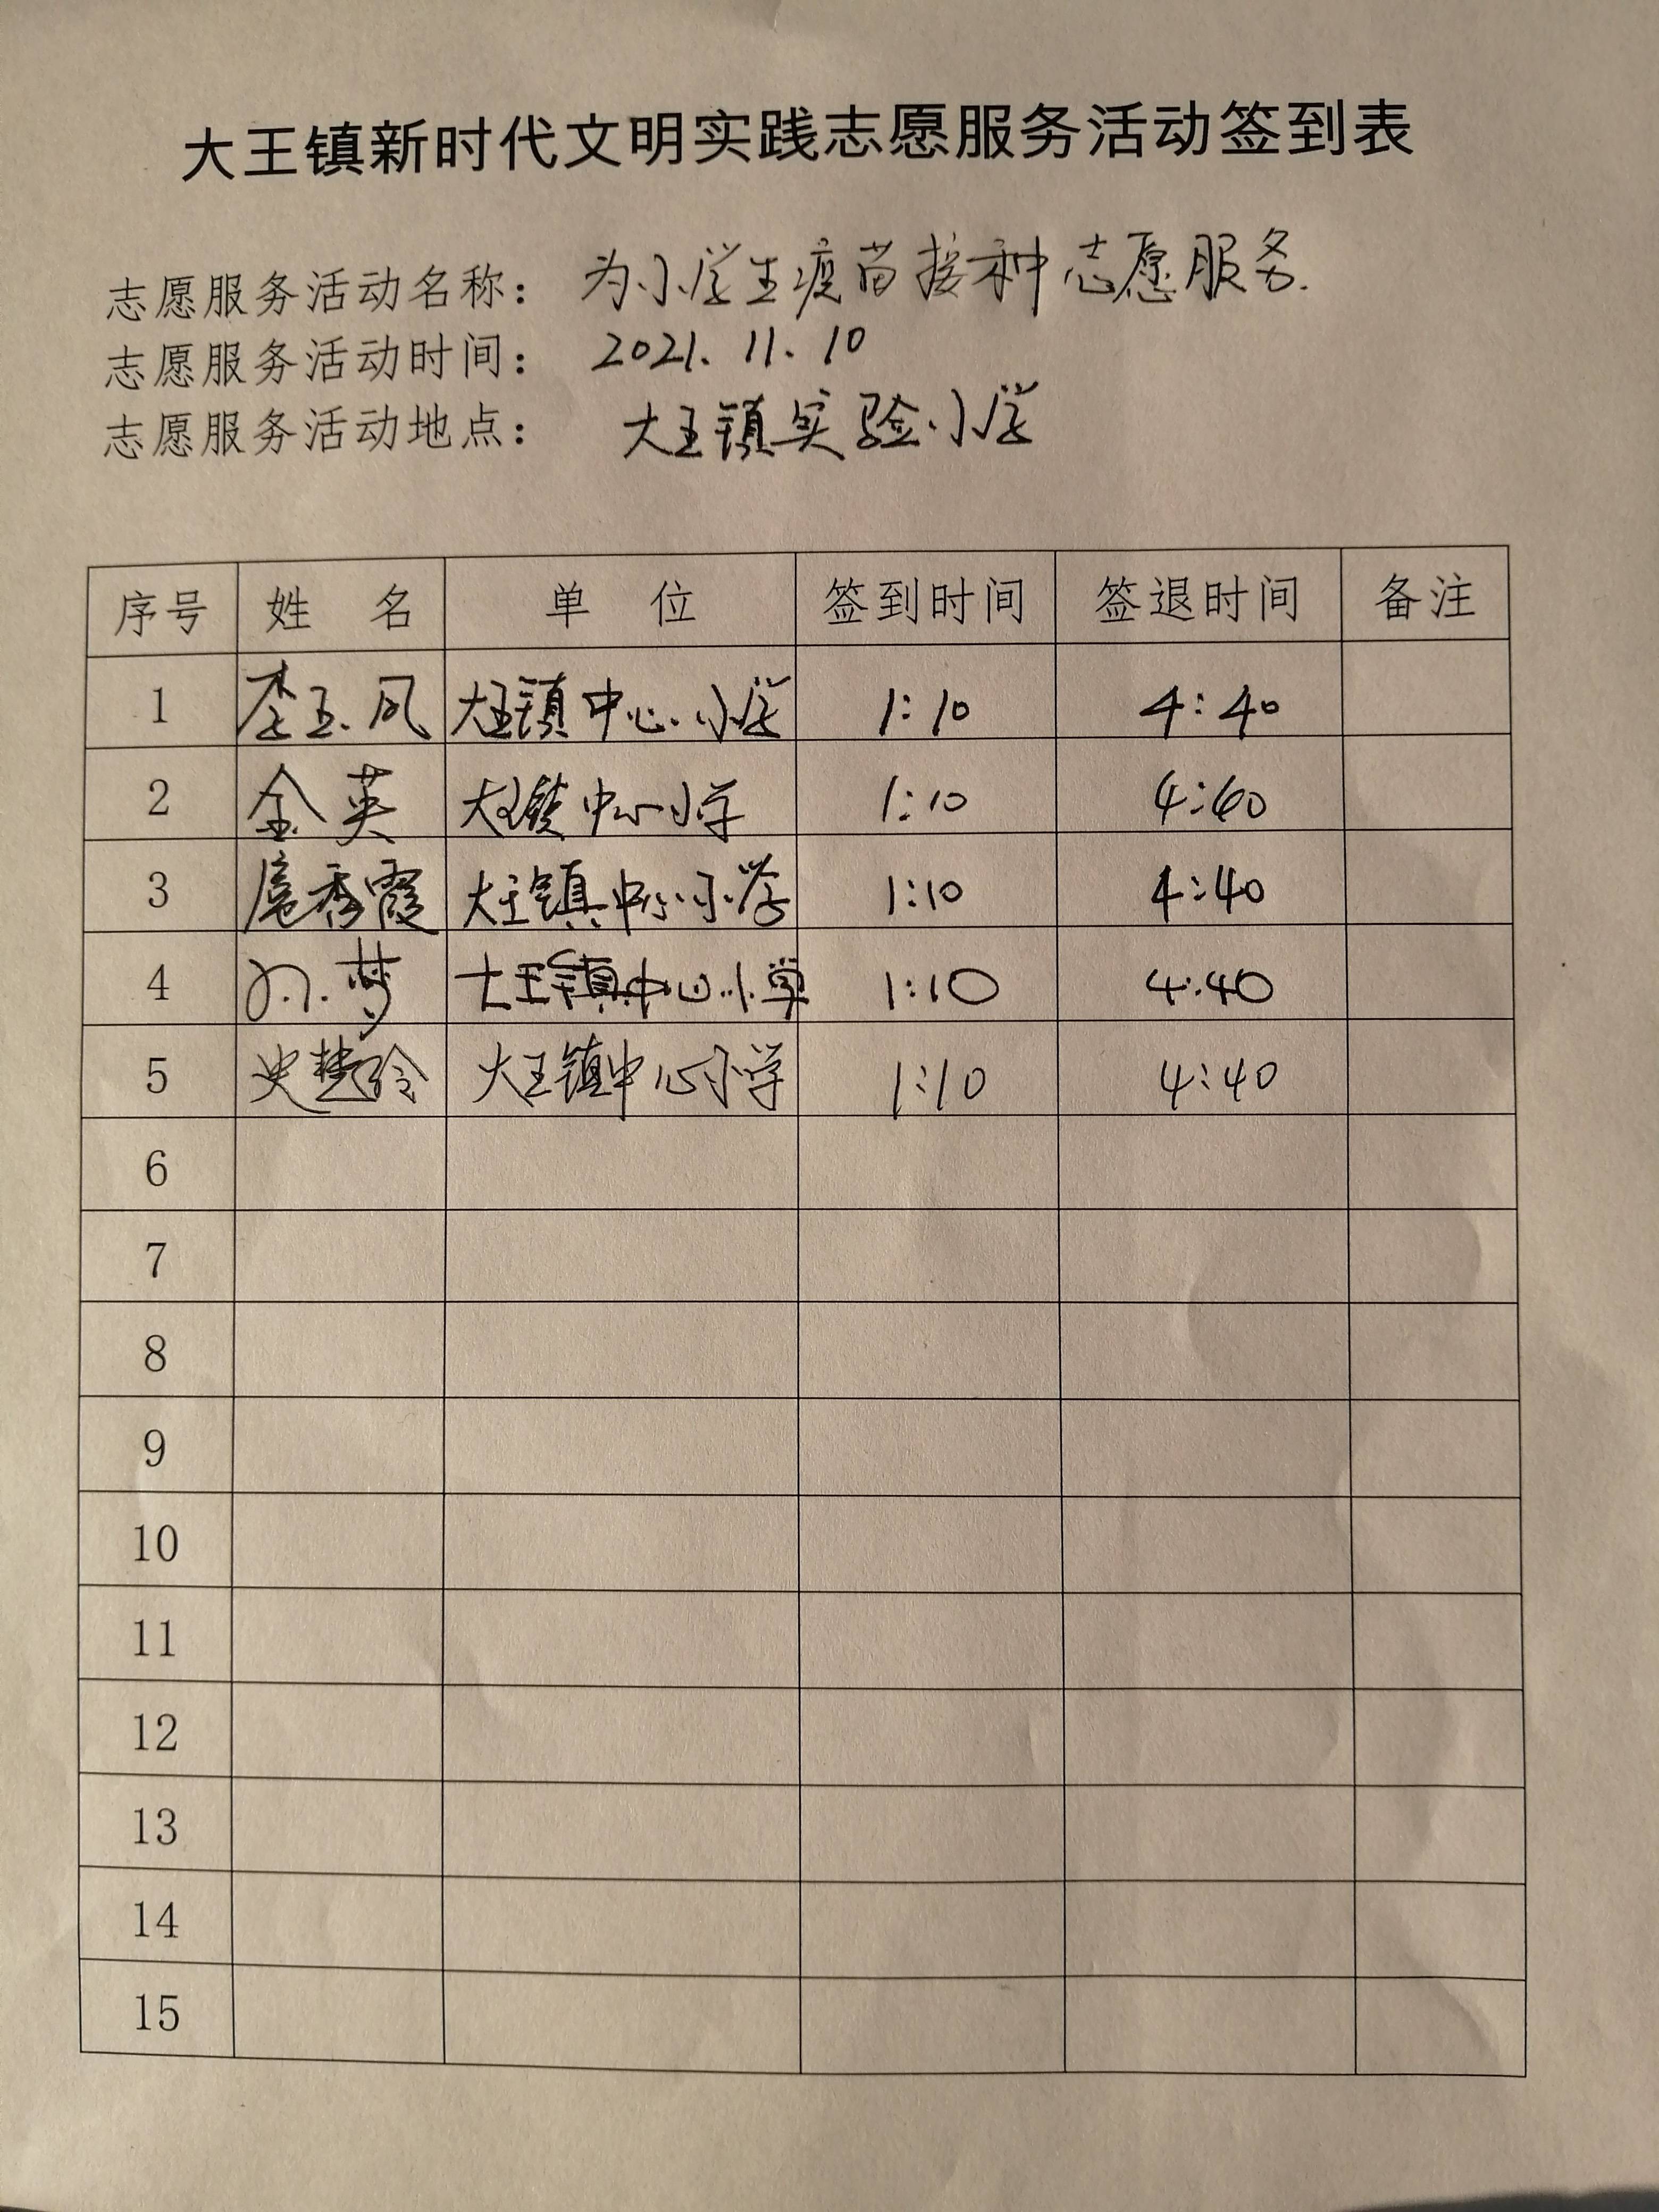 大王镇新时代文明实践志愿服务活动签到表
志愿服务活动名称： 为小学生疫苗接种志愿服务.
志愿服务活动时间： 2021. 11. 10
志愿服务活动地点： 大王镇实验小学
序号 姓 名 单 位 签到时间 签退时间 备注
1 李玉凤 大王镇中心小学 1:10 4:40
2 金英 大王镇中心小学 1:10 4:40
3 秀霞 大王镇中心小学 1:10 4:40
4 孙梦 大王镇中心小学 1:10 4:40
5 史楚玲 大王镇中心小学 1:10 4:40
6
7
8
9
10
11
12
13
14
15